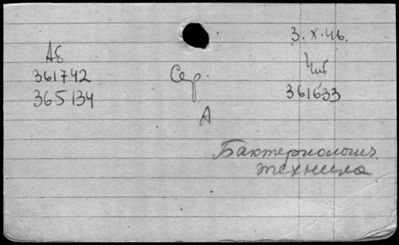 3. X. 46.
Аб
361742
365134
Сер.
А
Чиб
361633
Бактериологич.
техника